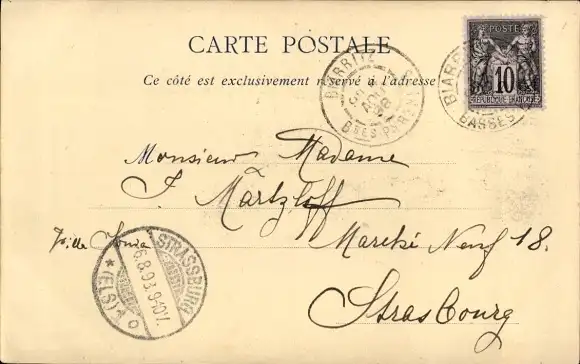 CARTE POSTALE
Ce côté est exclusivement réservé à l'adresse
POSTE
10
RÉPUBLIQUE FRANÇAISE
BIARRITZ
BSES PYREN
BIARR
BASSES
Monsieur Madame
J. Märtzloff
Marché Neuf 18.
Ville
Strasbourg
STRASSBURG
6.8.98.9-10V.
* (ELS) *